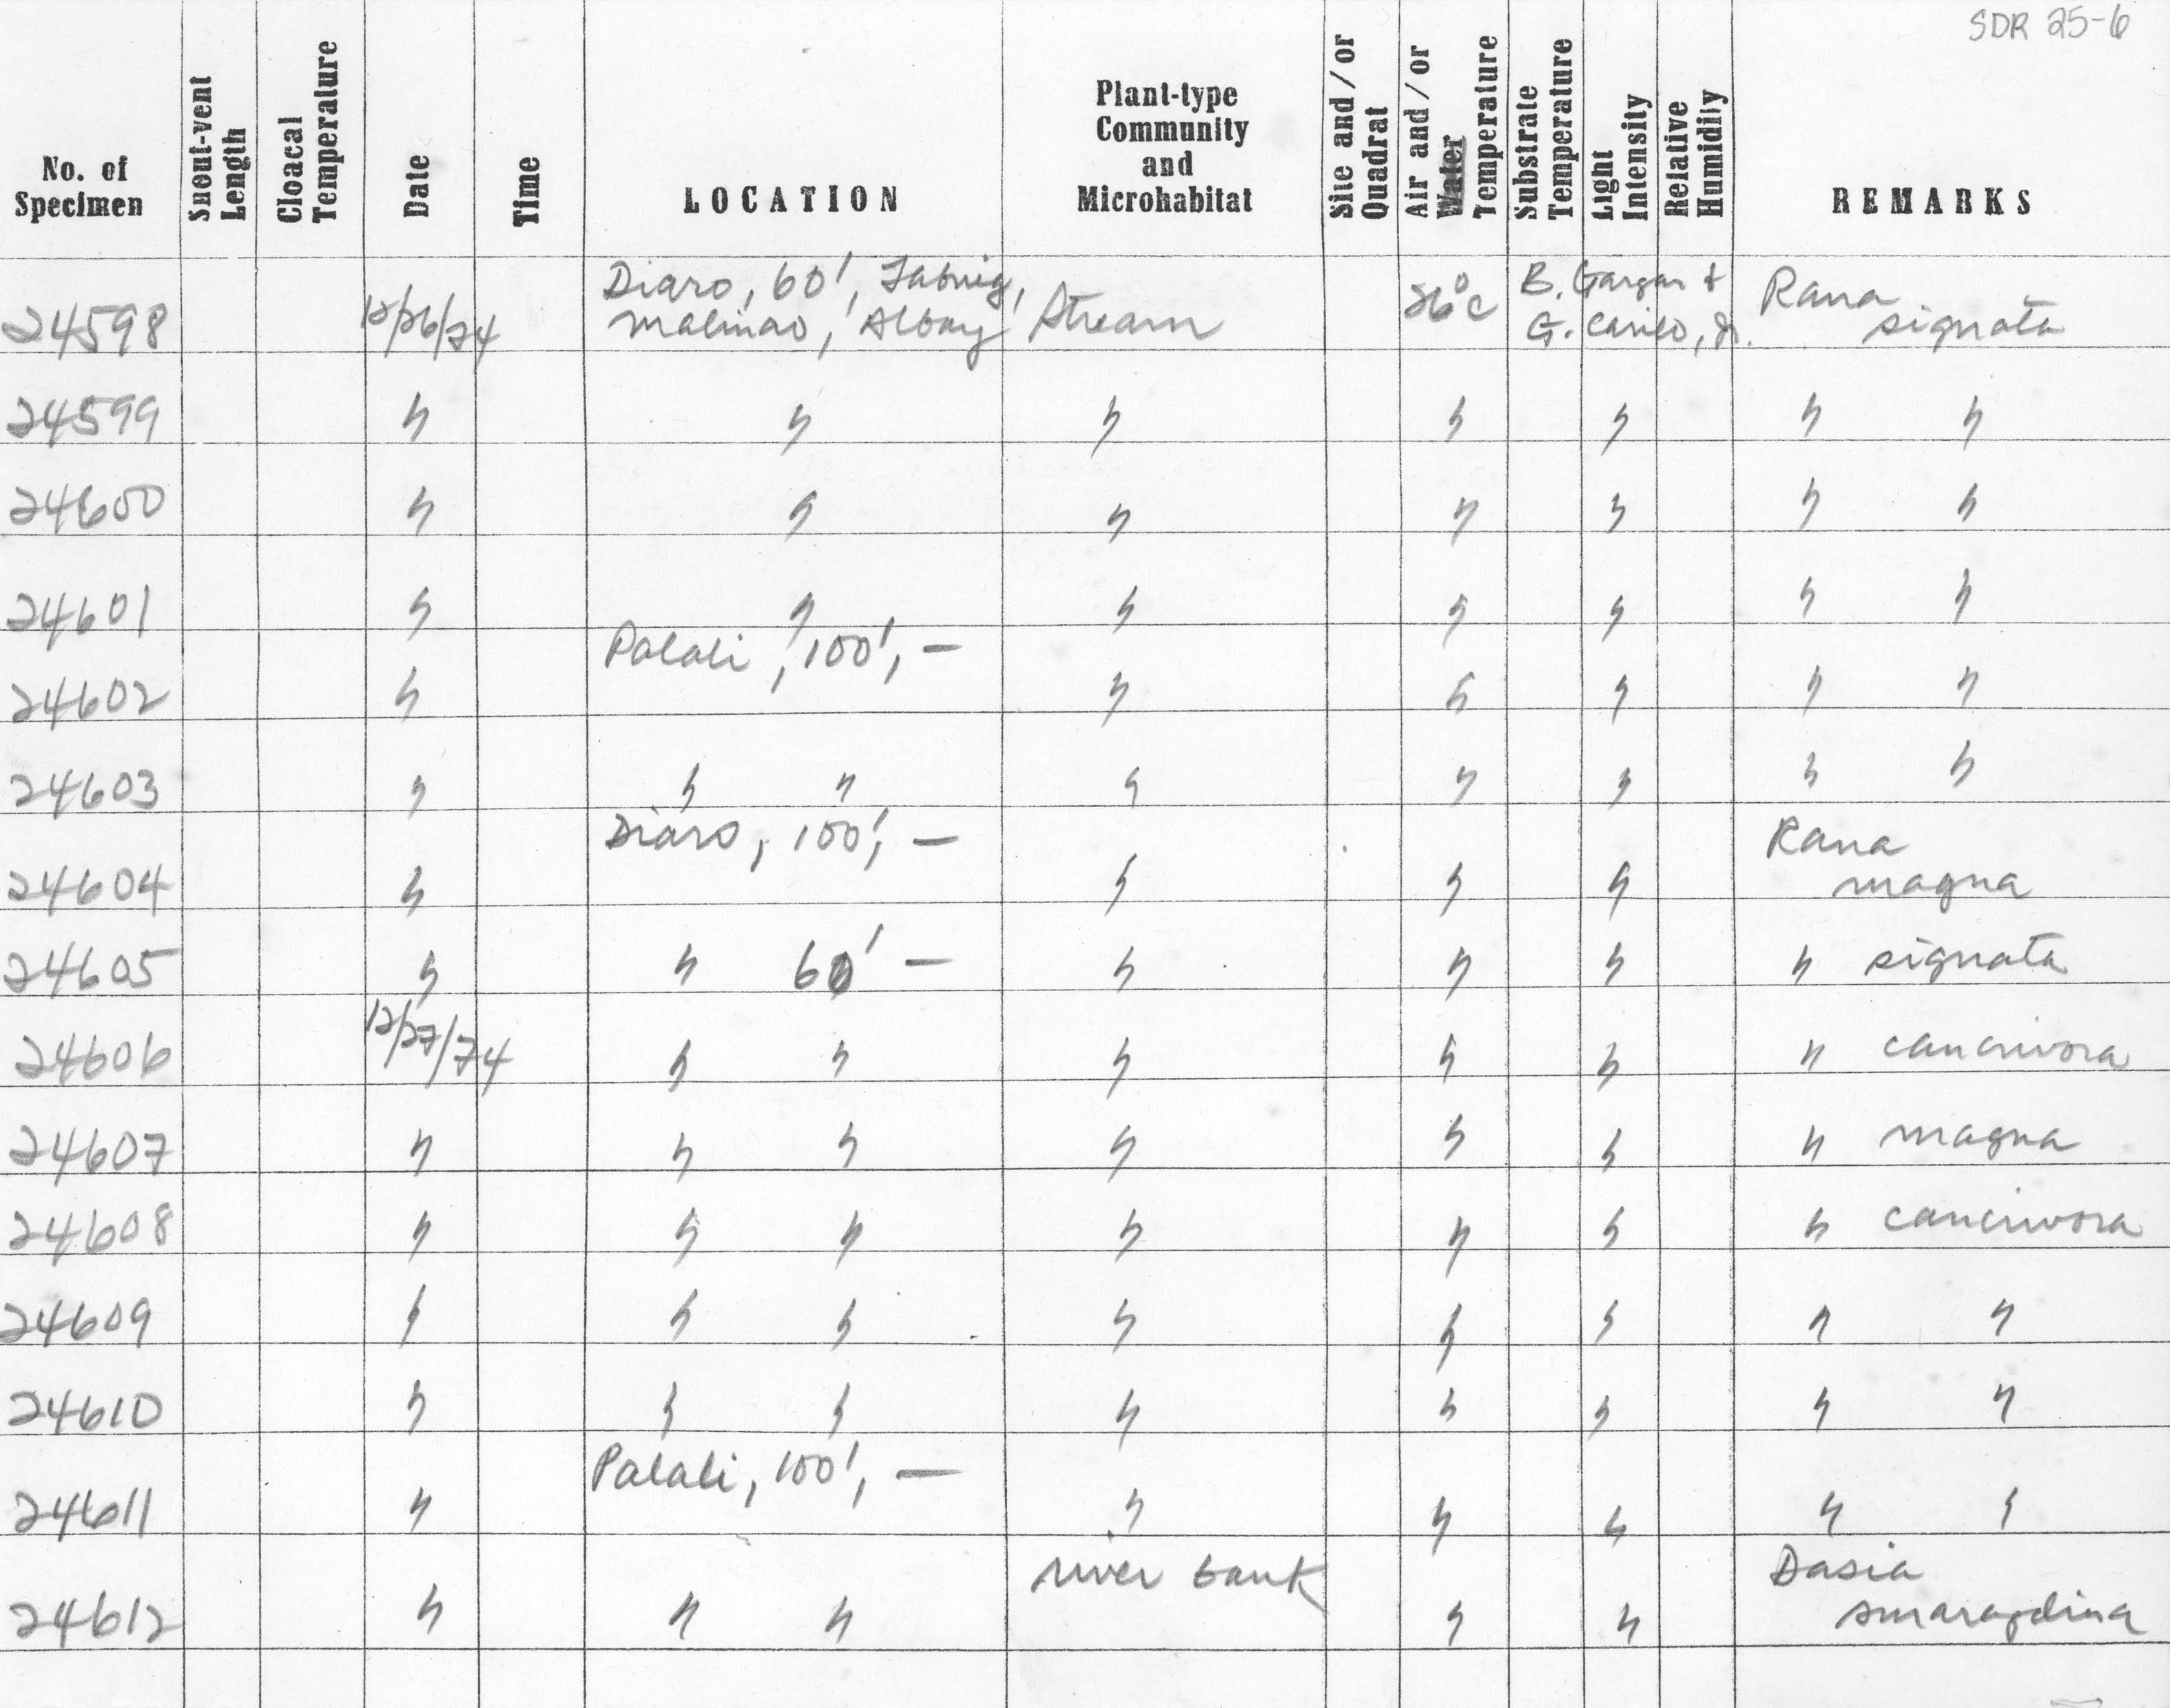 SDR 25-6
No. of Specimen
Snout-vent Length
Cloacal Temperature
Date
Time
LOCATION
Plant-type Community and Microhabitat
Site and/or Quadrat
Air and/or Water Temperature
Substrate Temperature
Light Intensity
Relative Humidity
REMARKS
24598 12/26/74 Diaro, 60', Tabnig, Malinao, Albay Stream 26°C B. Gargar & G. Carillo, Jr. Rana signata
24599 " " " " " " "
24600 " " " " " " "
24601 " " " " " " "
24602 " Palali, 100', — " " " " "
24603 " " " " " " " "
24604 " Diaro, 100', — " " " Rana magna
24605 " " 60' — " " " " signata
24606 12/27/74 " " " " " " cancrivora
24607 " " " " " " " magna
24608 " " " " " " " cancrivora
24609 " " " " " " " "
24610 " " " " " " " "
24611 " Palali, 100', — " " " " "
24612 " " " river bank " " Dasia smaragdina